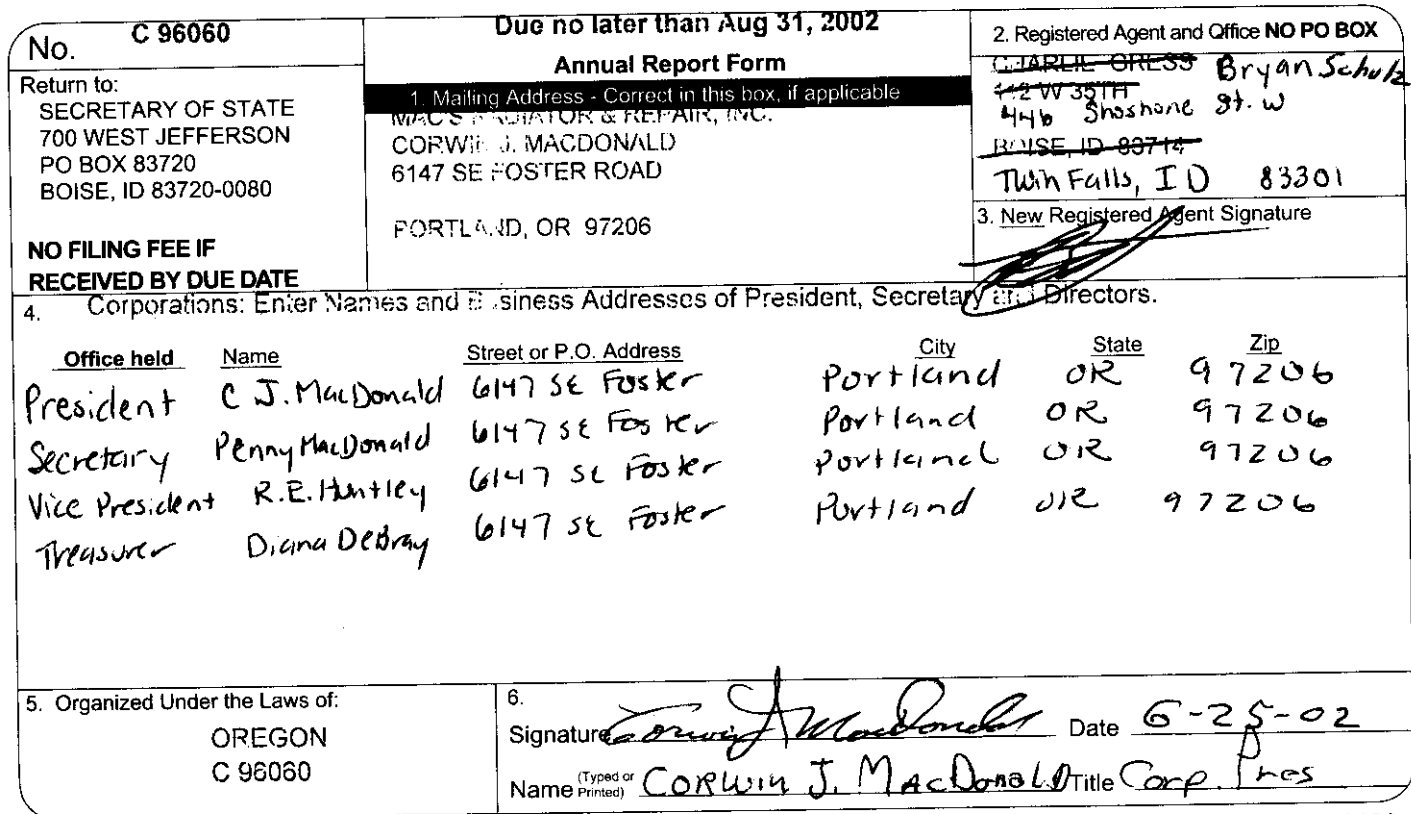 No. C 96060
Return to:
SECRETARY OF STATE
700 WEST JEFFERSON
PO BOX 83720
BOISE, ID 83720-0080
NO FILING FEE IF
RECEIVED BY DUE DATE
Due no later than Aug 31, 2002
Annual Report Form
1. Mailing Address - Correct in this box, if applicable
MAC'S RADIATOR & REPAIR, INC.
CORWIN J. MACDONALD
6147 SE FOSTER ROAD
PORTLAND, OR 97206
2. Registered Agent and Office NO PO BOX
CHARLIE CRESS Bryan Schulz
112 W 35TH
446 Shoshone St. W
BOISE, ID 83714
Twin Falls, ID 83301
3. New Registered Agent Signature
4. Corporations: Enter Names and Business Addresses of President, Secretary and Directors.
Office held Name Street or P.O. Address City State Zip
President C J. MacDonald 6147 SE Foster Portland OR 97206
Secretary Penny MacDonald 6147 SE Foster Portland OR 97206
Vice President R.E. Huntley 6147 SE Foster Portland OR 97206
Treasurer Diana DeBray 6147 SE Foster Portland OR 97206
5. Organized Under the Laws of:
OREGON
C 96060
6.
Signature Corwin J MacDonald Date 6-25-02
Name (Typed or Printed) CORWIN J. MACDONALD Title Corp. Pres